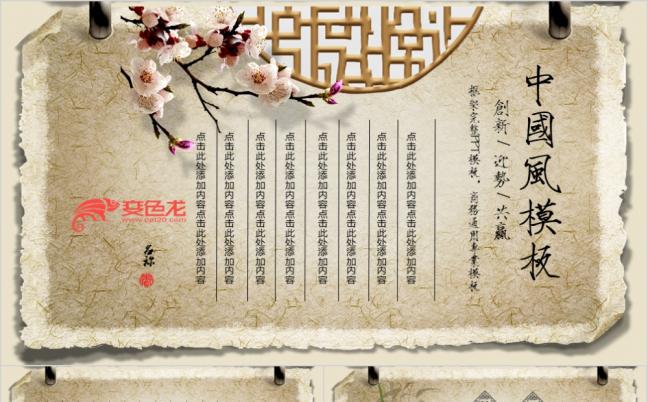 中國風模板
創新/迎勢/共贏
框架完整PPT模板，商務通用專業模板
点击此处添加内容点击此处添加内容
点击此处添加内容点击此处添加内容
点击此处添加内容点击此处添加内容
点击此处添加内容点击此处添加内容
点击此处添加内容点击此处添加内容
点击此处添加内容点击此处添加内容
点击此处添加内容点击此处添加内容
点击此处添加内容点击此处添加内容
变色龙
www.ppt20.com